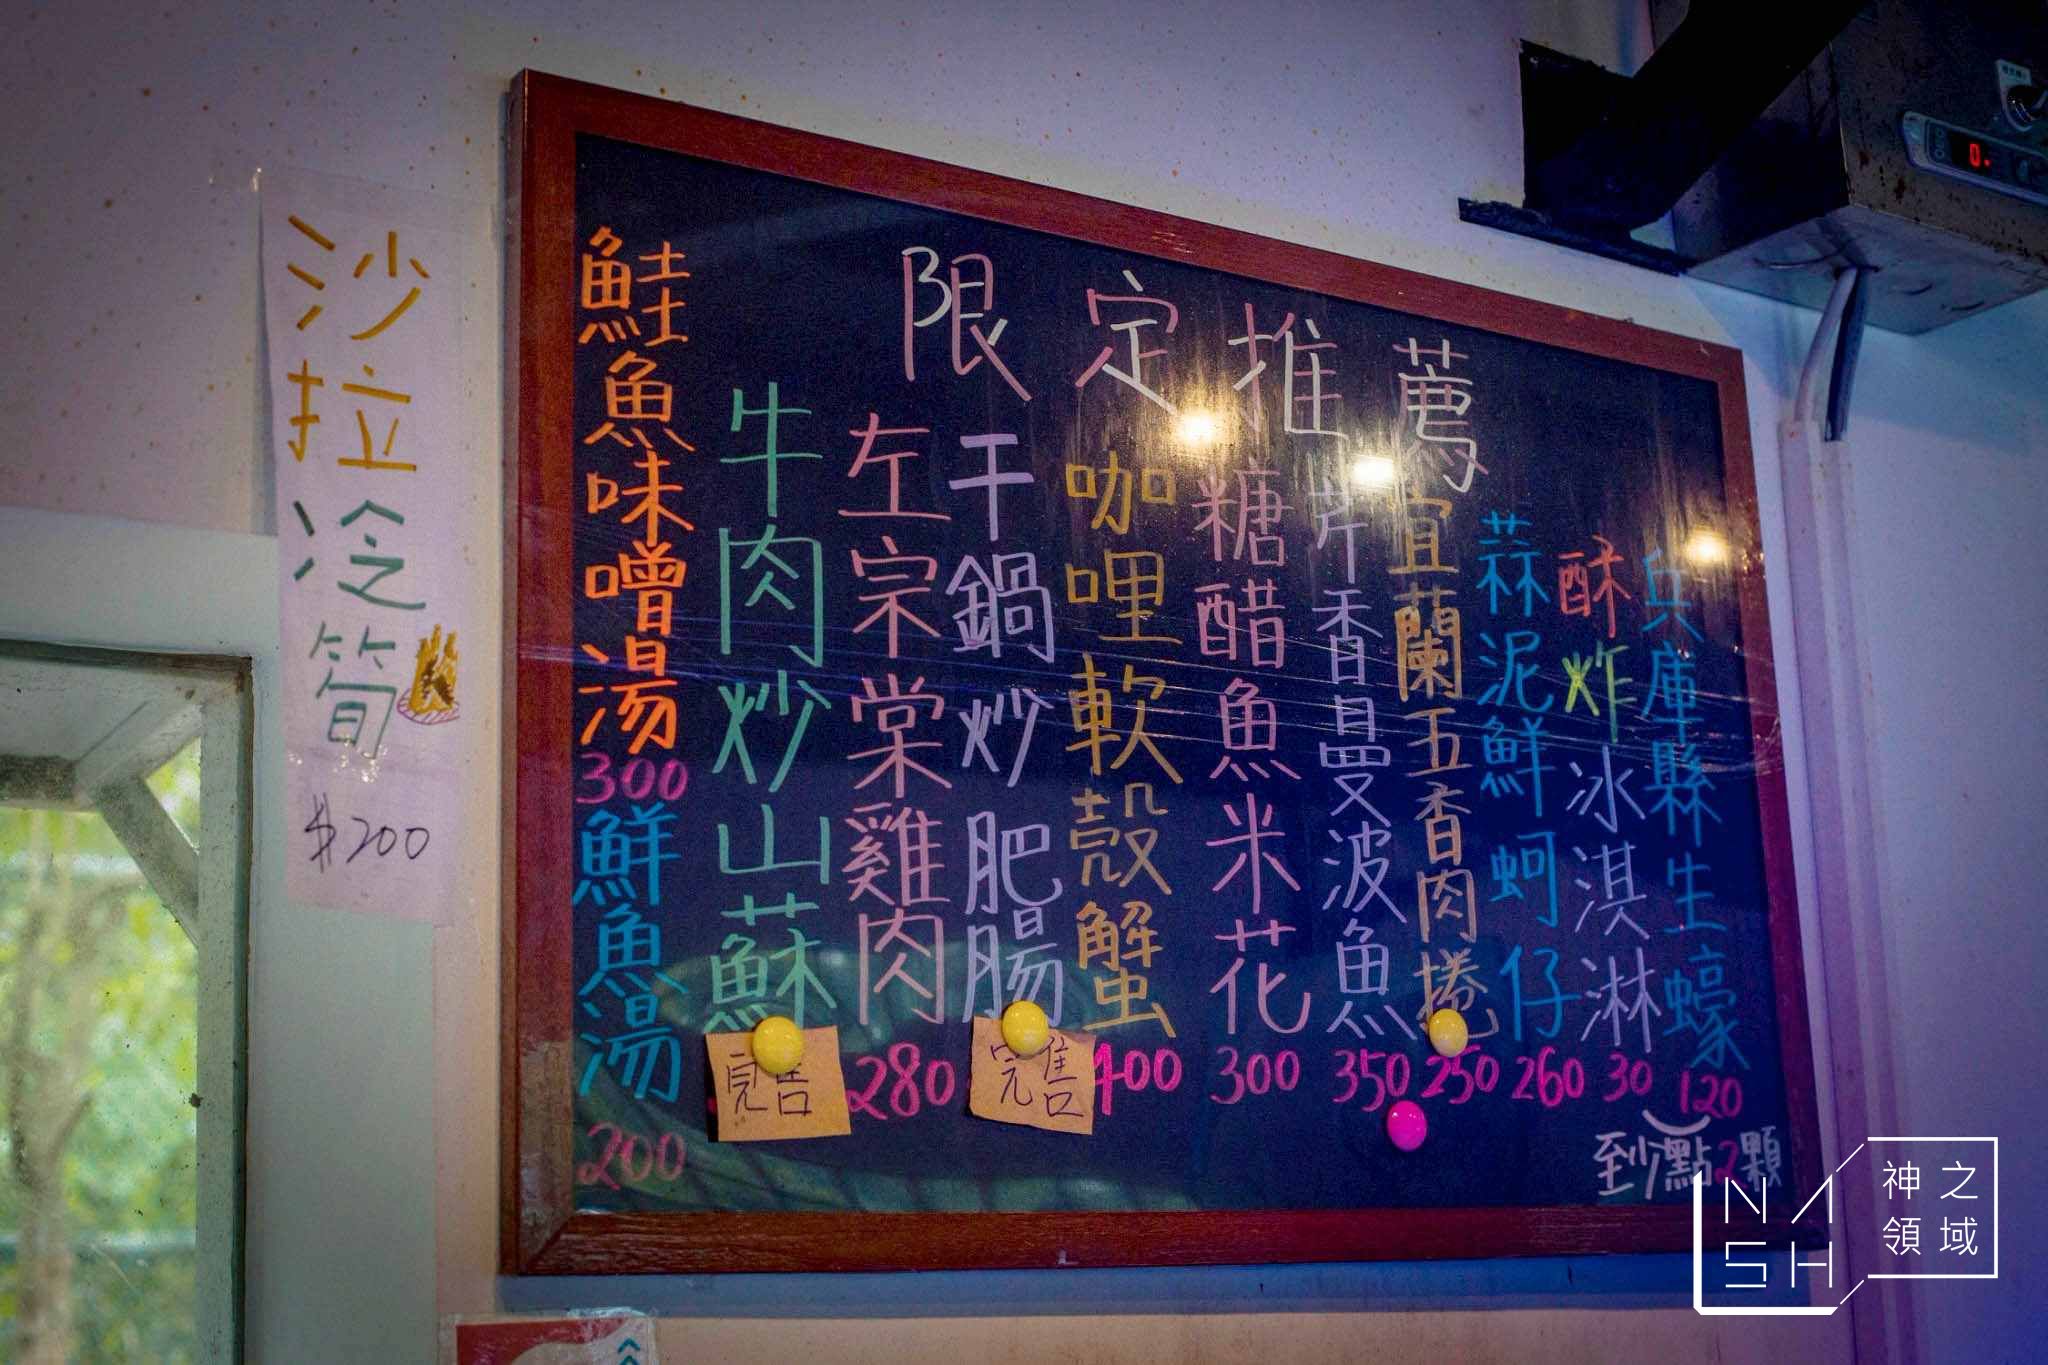 限定推薦
兵庫縣生蠔
120
到少點2顆
酥炸冰淇淋
30
蒜泥鮮蚵仔
260
宜蘭五香肉捲
250
芹香曼波魚
350
糖醋魚米花
300
咖哩軟殼蟹
400
干鍋炒肥腸
完售
左宗棠雞肉
280
牛肉炒山蘇
完售
鮭魚味噌湯
300
鮮魚湯
200
沙拉冷筍
$200
0.
NASH
神之
領域